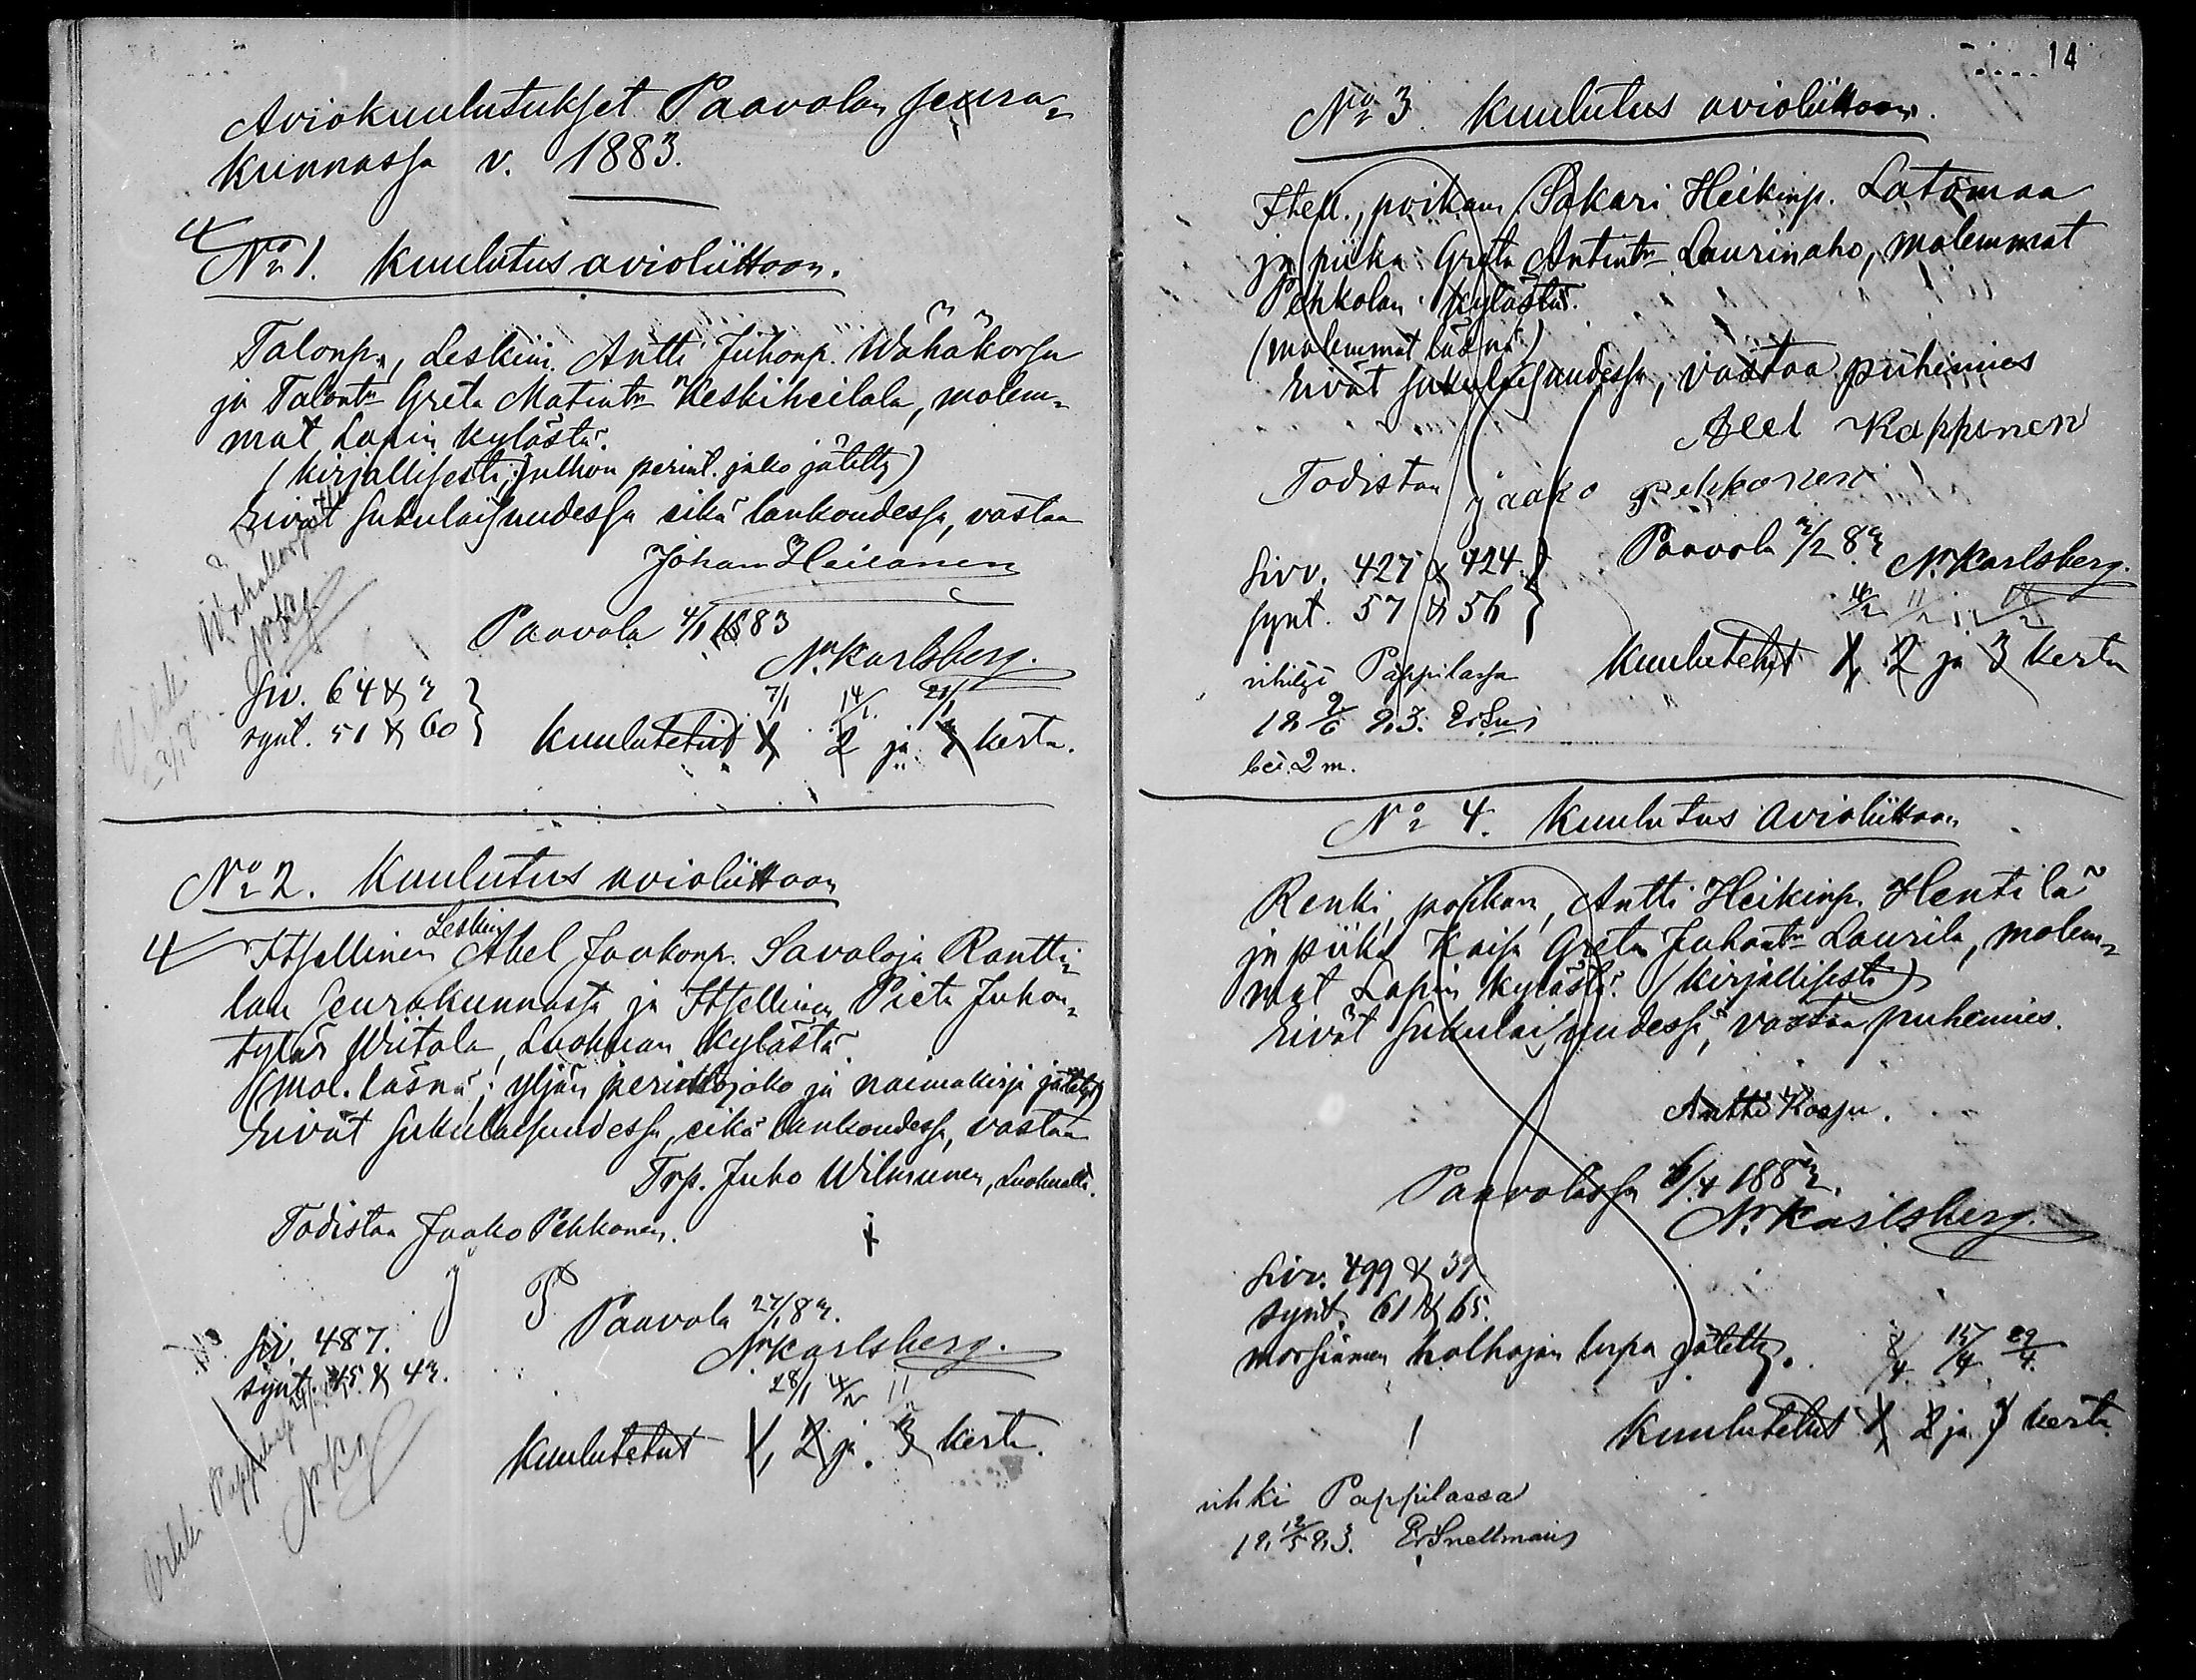 Aviokuulutukset Paavolan seura-
kunnassa v. 1883.
No 1. Kuulutus avioliittoon.
Talonp., Leskim. Antti Juhonp. Wähäkorpu
ja Talontr Greta Matintr Keskiheilala, molem-
mat Lapin kylästä.
(kirjallisesti; sulhon perint. jako jätetty)
Eivät sukulaisuudessa eikä lankoudessa, vastaa
Johan Heilanen
Paavola 4/1 1883
N. Karlsberg.
Siv. 64 & 3
synt. 51 & 60
7/1 14/1 21/1
Kuulutetut 1, 2 ja 3 kerta.
No 2. Kuulutus avioliittoon
Leskim
Itsellinen Abel Jaakonp. Savaloja Rantti-
lan seurakunnasta ja Itsellinen Pieta Juhon-
tytär Wiitala, Luohuan kylästä.
(mol. läsnä; yljän perintöjako ja naimakirja jätetty)
Eivät sukulaisuudessa, eikä lankoudessa, vastaa
Trp. Juho Wilmunen, Luohualta.
Todistaa Jaako Pehkonen.
Paavola 27/1 83.
N. Karlsberg.
siv. 487.
synt. 45 & 43.
28/1 4/2 11/2
Kuulutetut 1, 2 ja 3 kerta.
14
No 3. Kuulutus avioliittoon.
Itsell., poikam. Sakari Heikinp. Latomaa
ja piika Greta Antintr Laurinaho, molemmat
Pehkolan kylästä.
(molemmat läsnä)
Eivät sukulaisuudessa, vastaa puhemies
Abel Kapponen
Todistaa Jaako Pehkonen
Paavola 3/2 83 N. Karlsberg.
Sivv. 427 & 424
synt. 57 & 56
4/2 11/2 18/2
Kuulutetut 1, 2 ja 3 kerta
vihitys Pappilassa
18 9/6 83.
No 4. Kuulutus avioliittoon
Renki, poikam, Antti Heikinp. Hentilä
ja piika Kaisa Greta Juhontr Laurila, molem-
mat Lapin kylästä. (kirjallisesti)
Eivät sukulaisuudessa, vastaa puhemies.
Antti Kosju.
Paavolassa 6/4 1883.
N. Karlsberg.
Sivv. 499 & 39
synt. 61 & 65.
morsiamen holhojan lupa jätetty.
8/4 15/4 22/4
Kuulutetut 1, 2 ja 3 kerta.
vihki Pappilassa
18 12/5 83. E. Snellman